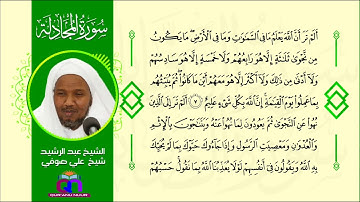 سورة المجادلة
ألم تر أن الله يعلم ما في السموت وما في الأرض ما يكون
من نجوى ثلثة إلا هو رابعهم ولا خمسة إلا هو سادسهم
ولا أدنى من ذلك ولا أكثر إلا هو معهم أين ما كانوا ثم ينبئهم
بما عملوا يوم القيمة إن الله بكل شيء عليم ٧ ألم تر إلى الذين
نهوا عن النجوى ثم يعودون لما نهوا عنه ويتنجون بالإثم
والعدون ومعصيت الرسول وإذا جاءوك حيوك بما لم يحيك
به الله ويقولون في أنفسهم لولا يعذبنا الله بما نقول حسبهم
الشيخ عبد الرشيد
شيخ علي صوفي